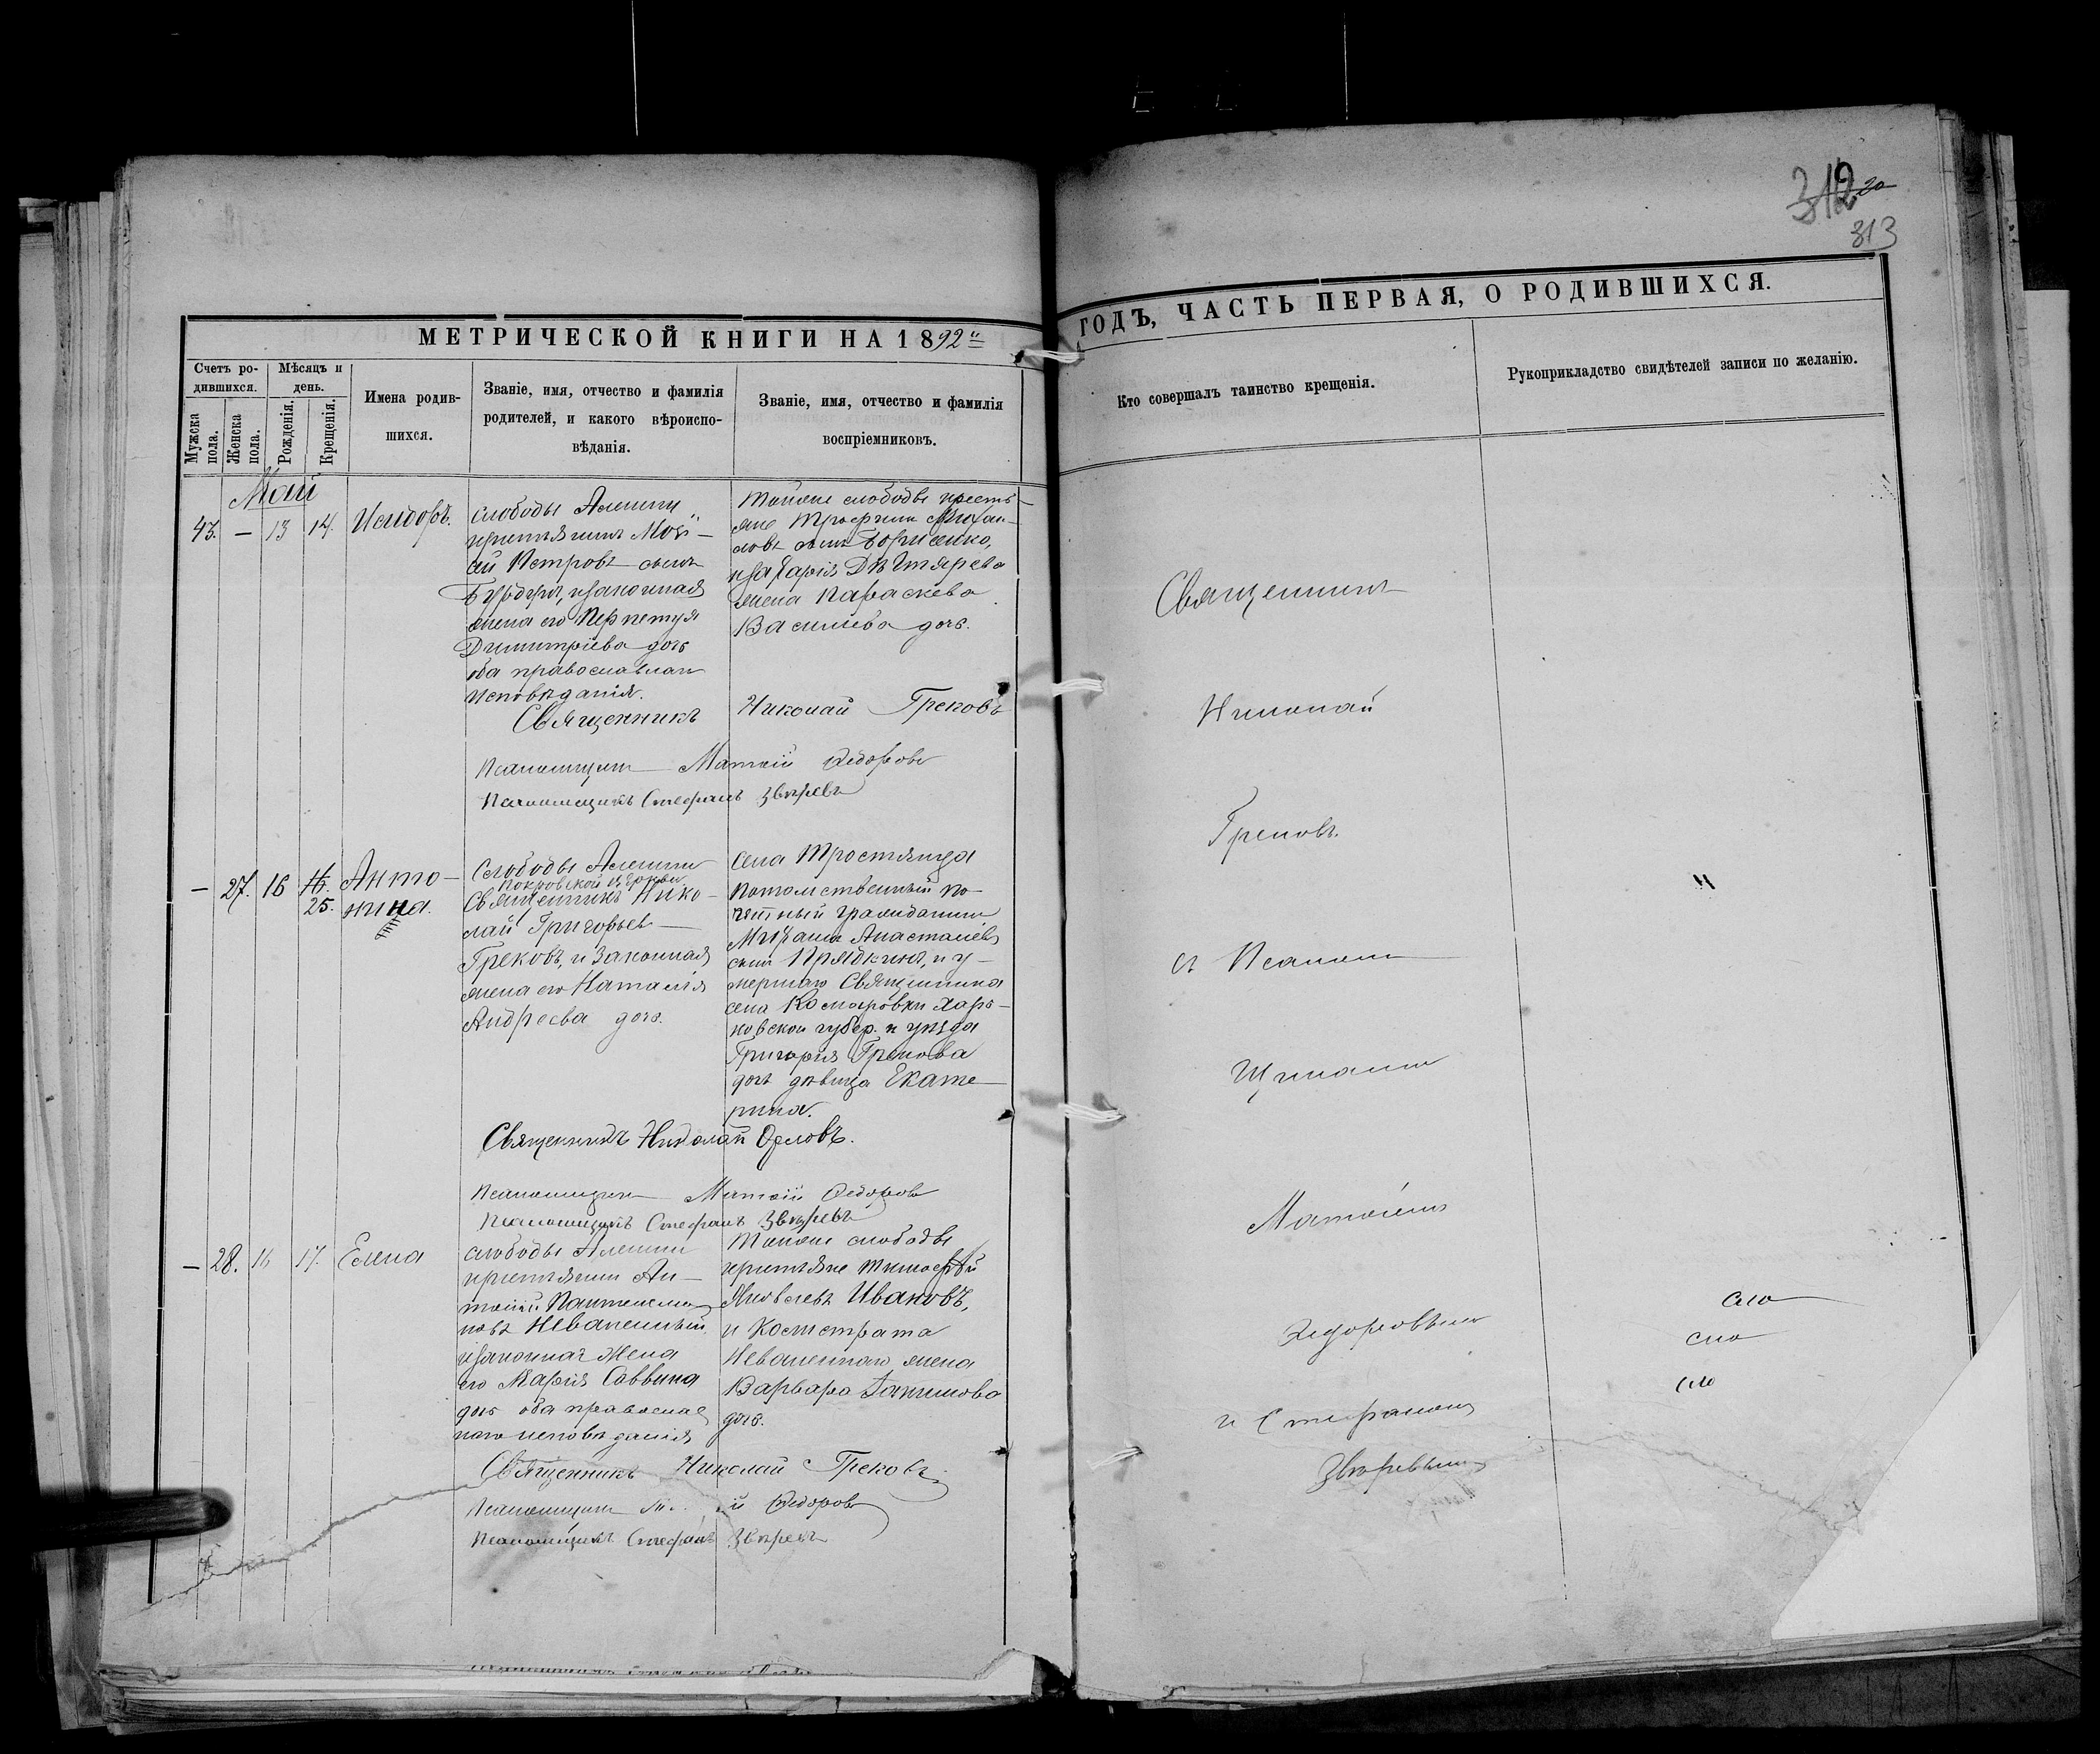 312
313
МЕТРИЧЕСКОЙ КНИГИ НА 1892
ГОДЪ, ЧАСТЬ ПЕРВАЯ, О РОДИВШИХСЯ.
Счетъ ро-
дившихся.
Мужска
пола.
Женска
пола.
Мѣсяцъ и
день.
Рожденія.
Крещенія.
Имена родив-
шихся.
Званіе, имя, отчество и фамилія
родителей, и какого вѣроиспо-
вѣданія.
Званіе, имя, отчество и фамилія
воспріемниковъ.
Кто совершалъ таинство крещенія.
Рукоприкладство свидѣтелей записи по желанію.
Май
43. — 13 14. Исидоръ.
слободы Алешни
крестьянинъ Моѵ-
сй Петровъ сынъ
законная
жена его Перпетуя
Димитріева дочь
оба православнаго
исповѣданія.
тойже слободы кресть-
яне Трофимъ Михаи-
ловъ сынъ Борисенко,
и Захарія Дѣхтярева
жена Параскева
Василіева дочь.
Священникъ Николай Грековъ
Псаломщикъ Матѳій Ѳедоровъ
Псаломщикъ Стефанъ Звѣревъ
— 27. 16 16. Анто-
25. нина.
Слободы Алешни
Покровской церкви
Священникъ Нико-
лай Григорьев
Грековъ, и законная
жена его Наталія
Андреева дочь.
села Тростянца
потомственный по-
четный гражданинъ
Михаилъ Анастасіевъ
сынъ Прядкинъ, и у-
мершаго Священника
села Комаровки Харь-
ковской губер. и уѣзда
Григорія Грекова
дочь дѣвица Екате-
рина.
Священникъ Николай Орловъ.
Псаломщикъ Матѳій Ѳедоровъ
Псаломщикъ Стефанъ Звѣревъ
— 28. 16 17. Елена
слободы Алешни
крестьянинъ Ан-
тоній Пантелеимо-
новъ Неваленный
и законная жена
его Марія Саввина
дочь оба православ
наго исповѣданія
Тойже слободы
крестьяне Тимофѣй
Яковлевъ Ивановъ,
и Костстрата
Неваленнаго жена
Варвара Іакимова
дочь.
Священникъ Николай Грековъ
Псаломщикъ Ѳедоровъ
Псаломщикъ Стефанъ Звѣревъ
Священникъ
Николай
Грековъ
съ Псалом
щиками
Матѳіемъ
Ѳедоровымъ
и Стефаномъ
Звѣревымъ